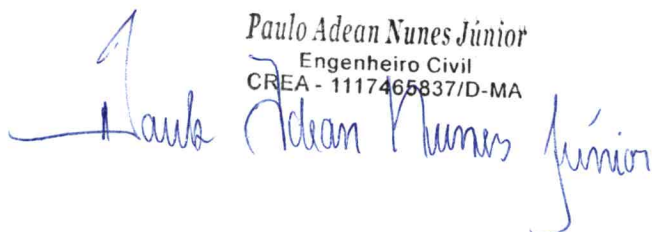 Paulo Adean Nunes Júnior
Engenheiro Civil
CREA - 1117465837/D-MA
Paulo Adean Nunes Júnior